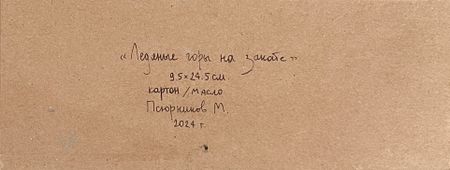 «Ледяные горы на закате»
9.5×24.5 см.
картон/масло
Псюрников М.
2024 г.